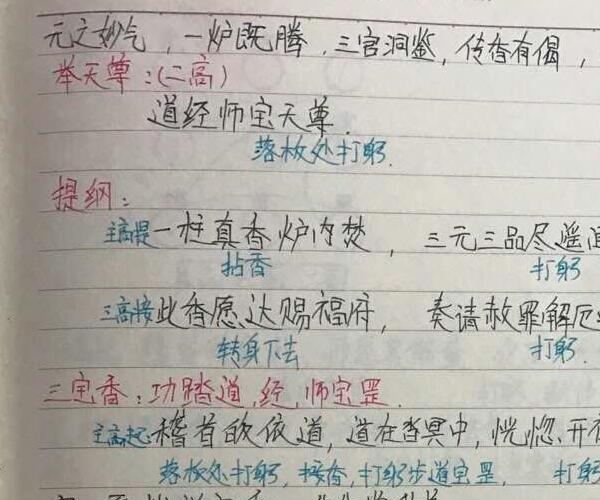 元之妙气，一炉既腾，三官洞鉴，传香有偈，
举天尊：(二高)
道经师宝天尊.
落板处打躬.
提纲：
主高提 一炷真香炉内焚，三元三品尽遥
拈香 打躬
三高接 此香愿达赐福府，奏请赦罪解厄
转身下去 打躬.
三宝香：功踏道,经,师宝罡.
主高起: 稽首皈依道，道在杳冥中，恍惚开
落板处打躬，接香，打躬步道宝罡， 打躬